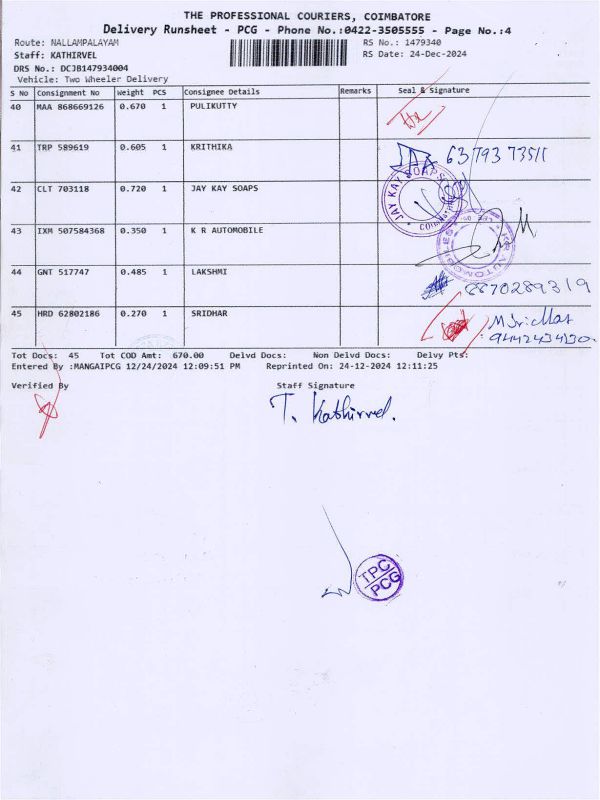 THE PROFESSIONAL COURIERS, COIMBATORE
Delivery Runsheet - PCG - Phone No.:0422-3505555 - Page No.:4
Route: NALLAMPALAYAM RS No.: 1479340
Staff: KATHIRVEL RS Date: 24-Dec-2024
DRS No.: DCJB147934004
Vehicle: Two Wheeler Delivery
S No Consignment No Weight PCS Consignee Details Remarks Seal & Signature
40 MAA 868669126 0.670 1 PULIKUTTY
41 TRP 589619 0.605 1 KRITHIKA 6379373511
42 CLT 703118 0.720 1 JAY KAY SOAPS
JAY KAY SOAPS
43 IXM 507584368 0.350 1 K R AUTOMOBILE
44 GNT 517747 0.485 1 LAKSHMI 8870289319
45 HRD 62802186 0.270 1 SRIDHAR
Tot Docs: 45 Tot COD Amt: 670.00 Delvd Docs: Non Delvd Docs: Delvy Pts:
Entered By :MANGAIPCG 12/24/2024 12:09:51 PM Reprinted On: 24-12-2024 12:11:25
Verified By Staff Signature
T. Kathirvel.
TPC
PCG